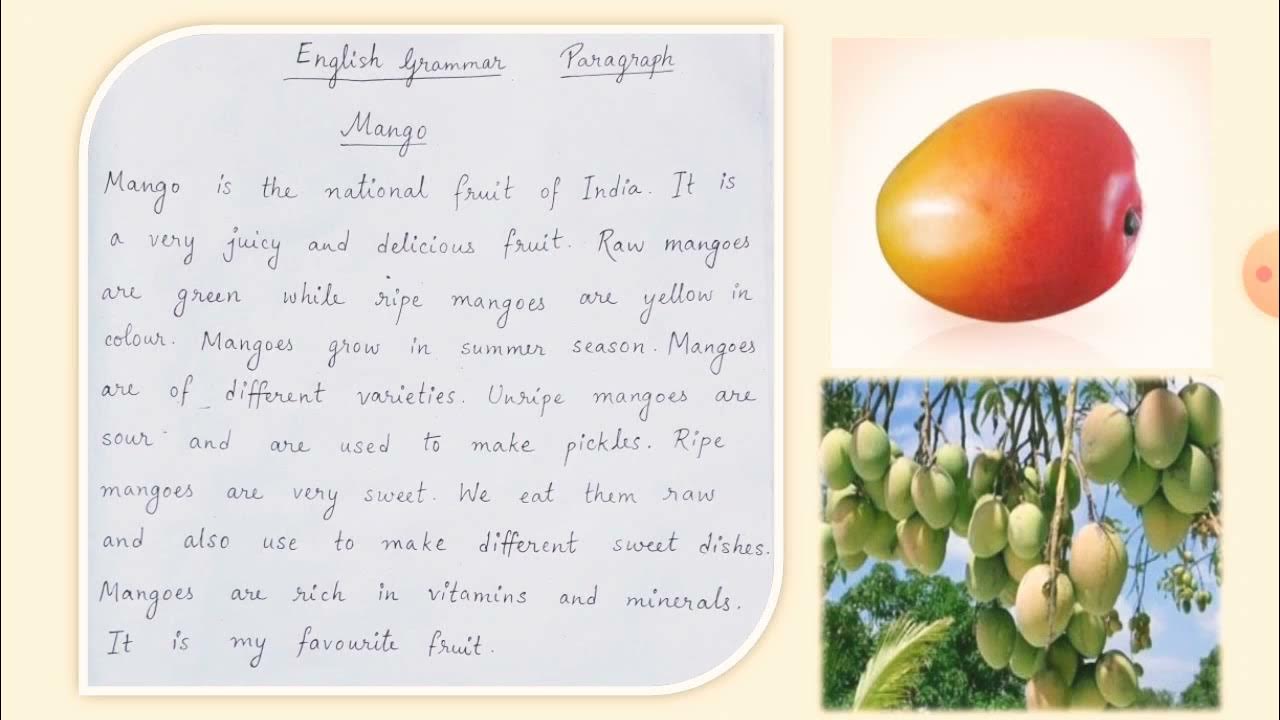 English Grammar Paragraph
Mango
Mango is the national fruit of India. It is
a very juicy and delicious fruit. Raw mangoes
are green while ripe mangoes are yellow in
colour. Mangoes grow in summer season. Mangoes
are of different varieties. Unripe mangoes are
sour and are used to make pickles. Ripe
mangoes are very sweet. We eat them raw
and also use to make different sweet dishes.
Mangoes are rich in vitamins and minerals.
It is my favourite fruit.